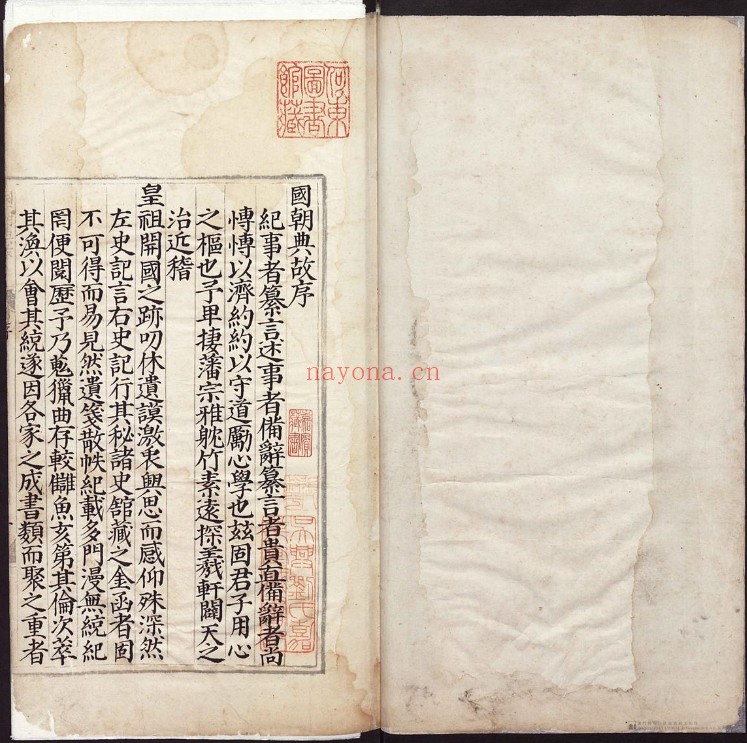 國朝典故序
紀事者纂言述事者備辭纂言者貴直備辭者尚
慱慱以濟約約以守道勵心學也兹固君子用心
之樞也予卑棲藩宗雅躭竹素遠探羲軒闢天之
治近稽
皇祖開國之跡叨休遺謨激衷興思而感仰殊深然
左史記言右史記行其秘諸史舘藏之金函者固
不可得而易見然遺箋散帙紀載多門漫無統紀
罔便閱歷予乃蒐獵曲存較讎魚亥第其倫次萃
其渙以會其統遂因各家之成書類而聚之重者
河東
圖書
館藏
nayona.cn